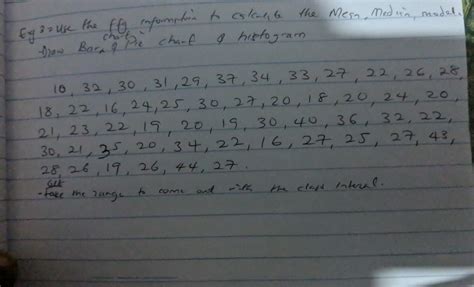 Eg 2: Use the ff information to calculate the Mean, Median, modal.
Draw Bar chart, Pie chart & histogram
10, 32, 30, 31, 29, 37, 34, 33, 27, 22, 26, 28,
18, 22, 16, 24, 25, 30, 27, 20, 18, 20, 24, 20,
21, 23, 22, 19, 20, 19, 30, 40, 36, 32, 22,
30, 21, 35, 20, 34, 22, 16, 27, 25, 27, 43,
28, 26, 19, 26, 44, 27.
the range to come out with the class interval.